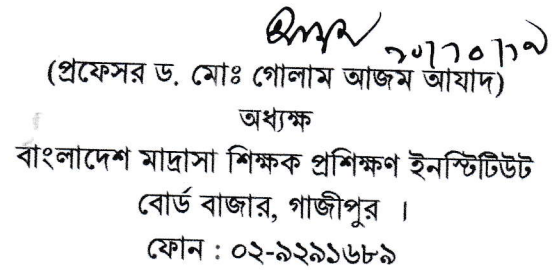 (প্রফেসর ড. মোঃ গোলাম আজম আযাদ)
অধ্যক্ষ
বাংলাদেশ মাদ্রাসা শিক্ষক প্রশিক্ষণ ইনস্টিটিউট
বোর্ড বাজার, গাজীপুর ।
ফোন : ০২-৯২৯১৬৮৯